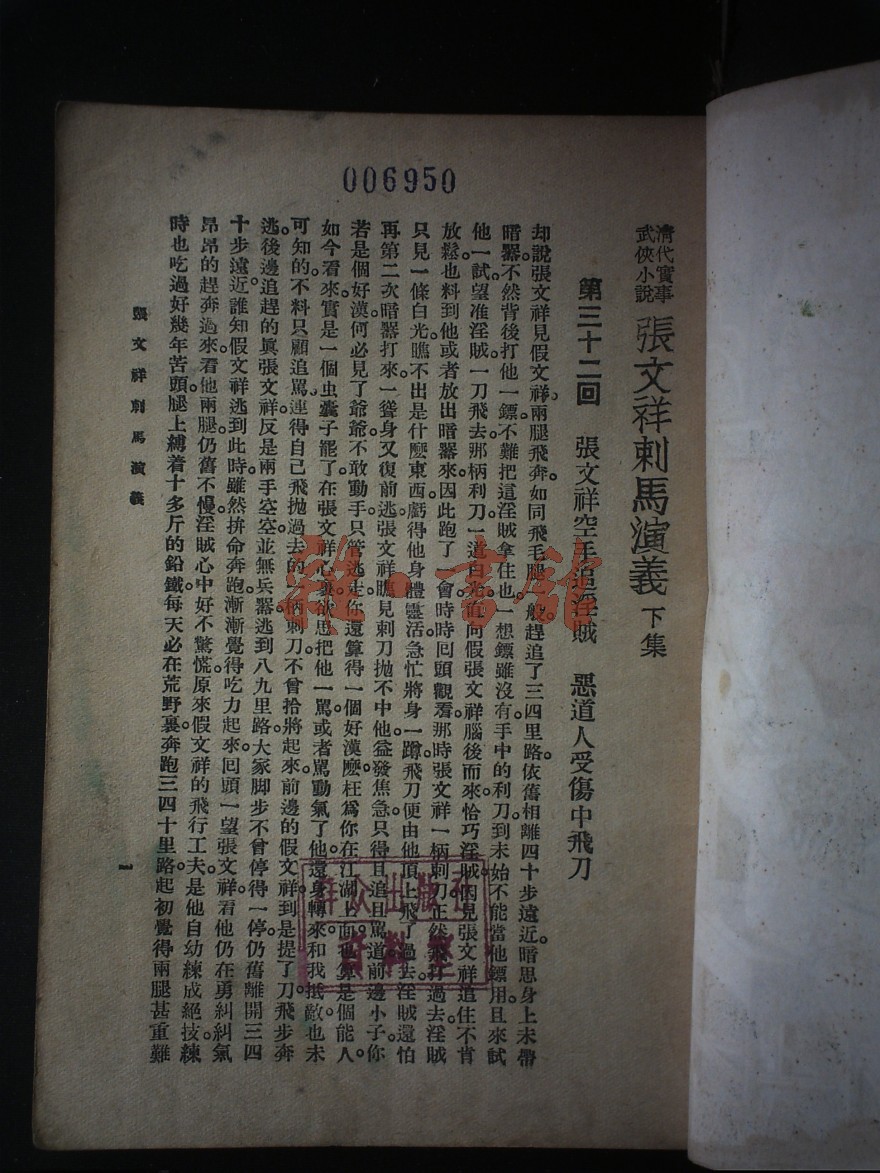 006950
清代實事
武俠小說
張文祥刺馬演義 下集
第三十二回 張文祥空手追淫賊 惡道人受傷中飛刀
却說張文祥見假文祥兩腿飛奔。如同飛毛腿一般。趕追了三四里路。依舊相離四十步遠近。暗思身上未帶
暗器。不然背後打他一鏢。不難把這淫賊拿住也。一想鏢雖沒有。手中的利刀。到未始不能當他鏢用。且來試
他一試。望准淫賊一刀飛去。那柄利刀。一道白光。直向假張文祥腦後而來。恰巧淫賊因見張文祥追住不肯
放鬆。也料到他或者放出暗器來。因此跑了一會。時時回頭觀看。那時張文祥一柄刺刀。正然飛打過去。淫賊
只見一條白光。瞧不出是什麼東西。虧得他身體靈活。急忙將身一蹲。飛刀便由他頂上飛了過去。淫賊還怕
再第二次暗器打來。一聳身又復前逃。張文祥瞧見刺刀拋不中他。益發焦急。只得且追且罵道。前邊小子。你
若是個好漢。何必見了爺爺。不敢動手。只管逃走。你還算得一個好漢麼。枉為你在江湖上面。也算是個能人。
如今看來。實是一個虫囊子罷了。在張文祥心裏。欲思把他一罵。或者罵動氣了他。還身轉來。和我抵敵。也未
可知的。不料只顧追罵。連得自己飛拋過去的一柄刺刀。不曾拾將起來。前邊的假文祥。到是提了刀飛步奔
逃。後邊追趕的眞張文祥。反是兩手空空。並無兵器。逃到八九里路。大家脚步不曾停得一停。仍舊離開三四
十步遠近。誰知假文祥逃到此時。雖然拚命奔跑。漸漸覺得吃力起來。回頭一望張文祥。看他仍在勇糾糾氣
昂昂的趕奔過來。看他兩腿仍舊不慢。淫賊心中好不驚慌。原來假文祥的飛行工夫。是他自幼練成絕技。練
時也吃過好幾年苦頭。腿上縛着十多斤的鉛鐵。每天必在荒野裏奔跑三四十里路。起初覺得兩腿甚重難
張文祥刺馬演義
一
群众出版社
資料室